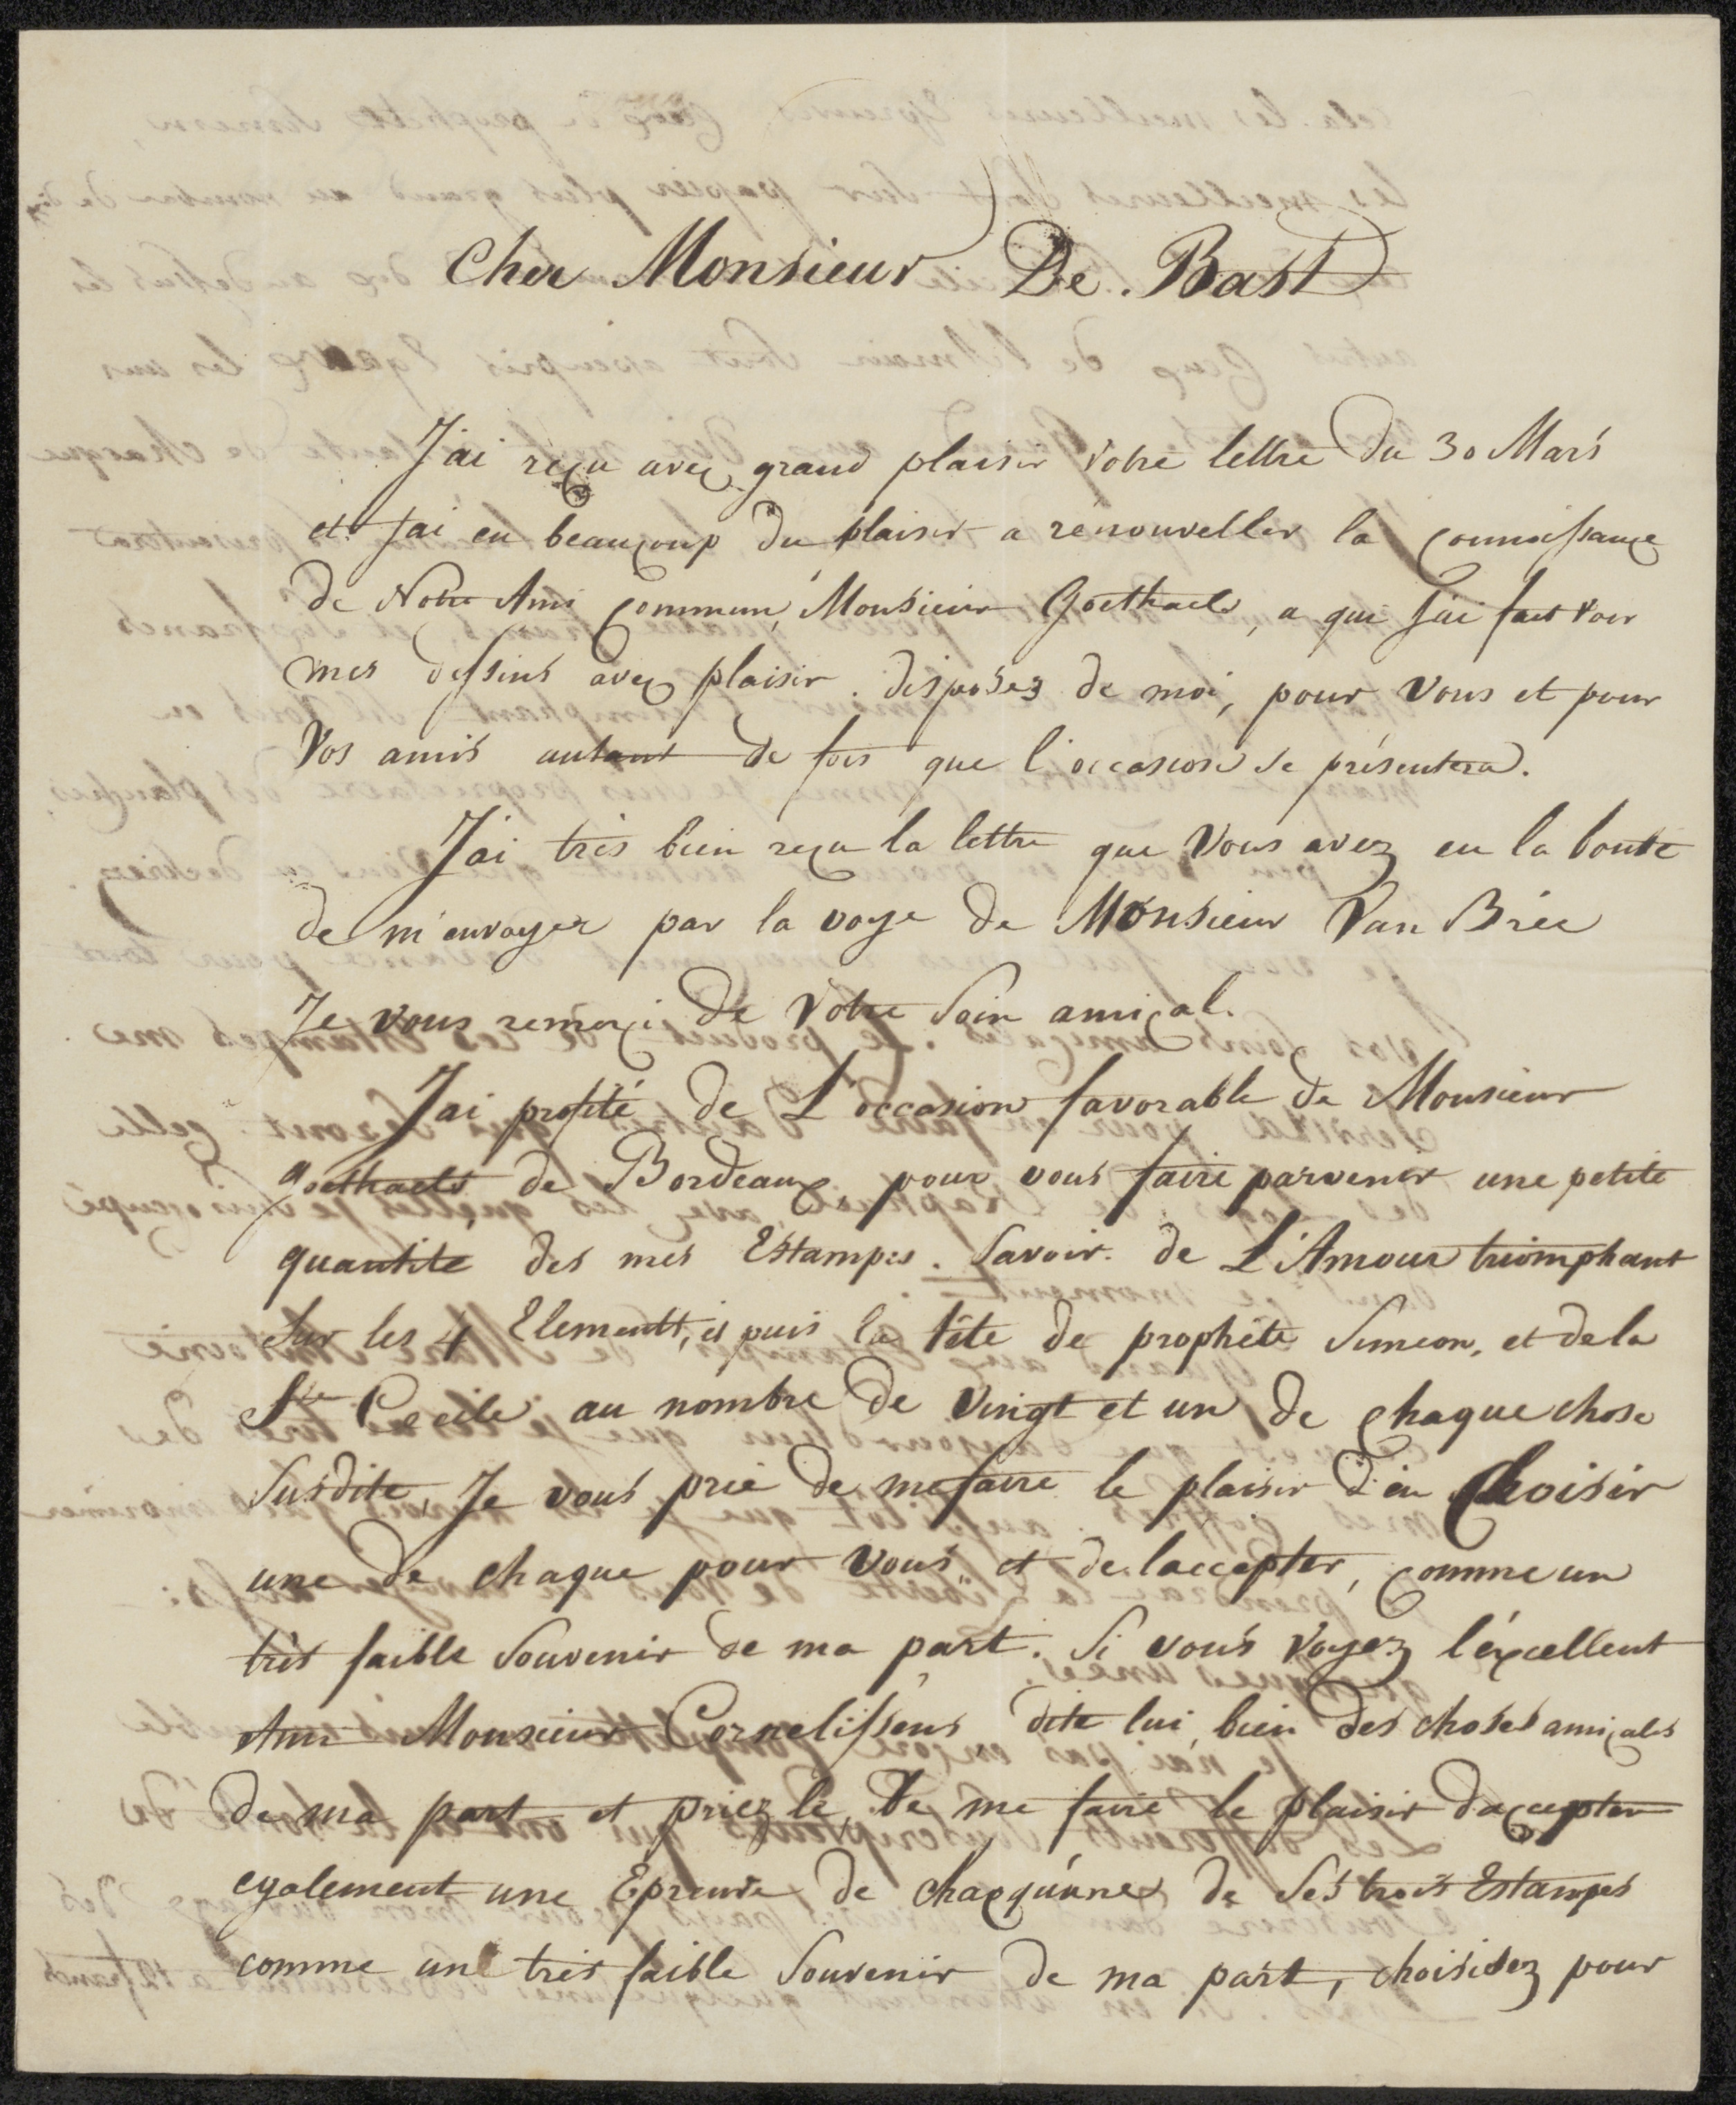 Cher Monsieur De Bast
J'ai reçu avec grand plaisir votre lettre du 30 Mars
et j'ai eu beaucoup du plaisir a renouveller la connoissance
de Notre Ami commun, Monsieur Goethaels, a qui j'ai fait voir
mes dessins avec plaisir. disposez de moi, pour vous et pour
Vos amis autant de fois que l'occasion se présentera.
J'ai très bien reçu la lettre que vous avez eu la bonté
de m'envoyer par la voye de Monsieur Van Brée
Je vous remerci de Votre soin amical.
J'ai profité de L'occasion favorable de Monsieur
goethaels de Bordeaux pour vous faire parvenir une petite
quantité des mes Estampes. Savoir. de L'Amour triomphant
sur les 4 Elementt, et puis la tête de prophéte Simeon, et de la
Ste Cecile au nombre de vingt et un de chaque chose
susdite, Je vous prie de me faire le plaisir d'en Choisir
une de chaque pour vous, et de laccepter, comme un
très faible Souvenir de ma part. Si vous voyez l'éxcellent
Ami Monsieur Cornelissens dite lui bien des choses amicales
de ma part et priez le, De me faire le plaisir dáccepter
egalement une Epreuve de chacqúune de Ses trois Estampes
comme une très faible Souvenir de ma part, choisisez pour